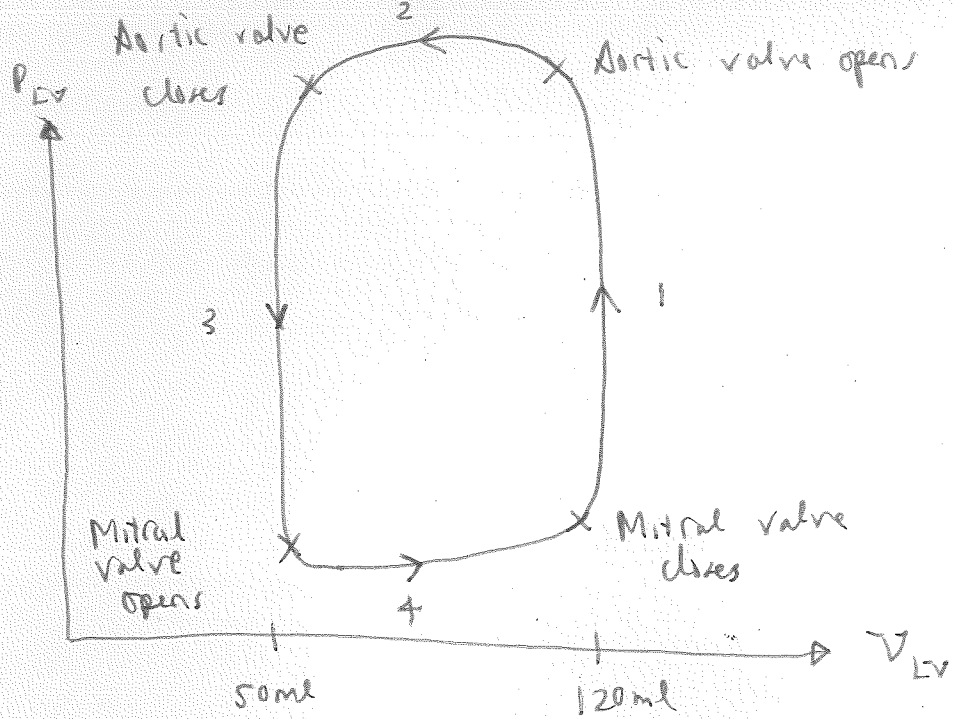 2
Aortic valve
closes
Aortic valve opens
P LV
3
1
Mitral
valve
opens
Mitral valve
closes
4
V LV
50ml
120ml